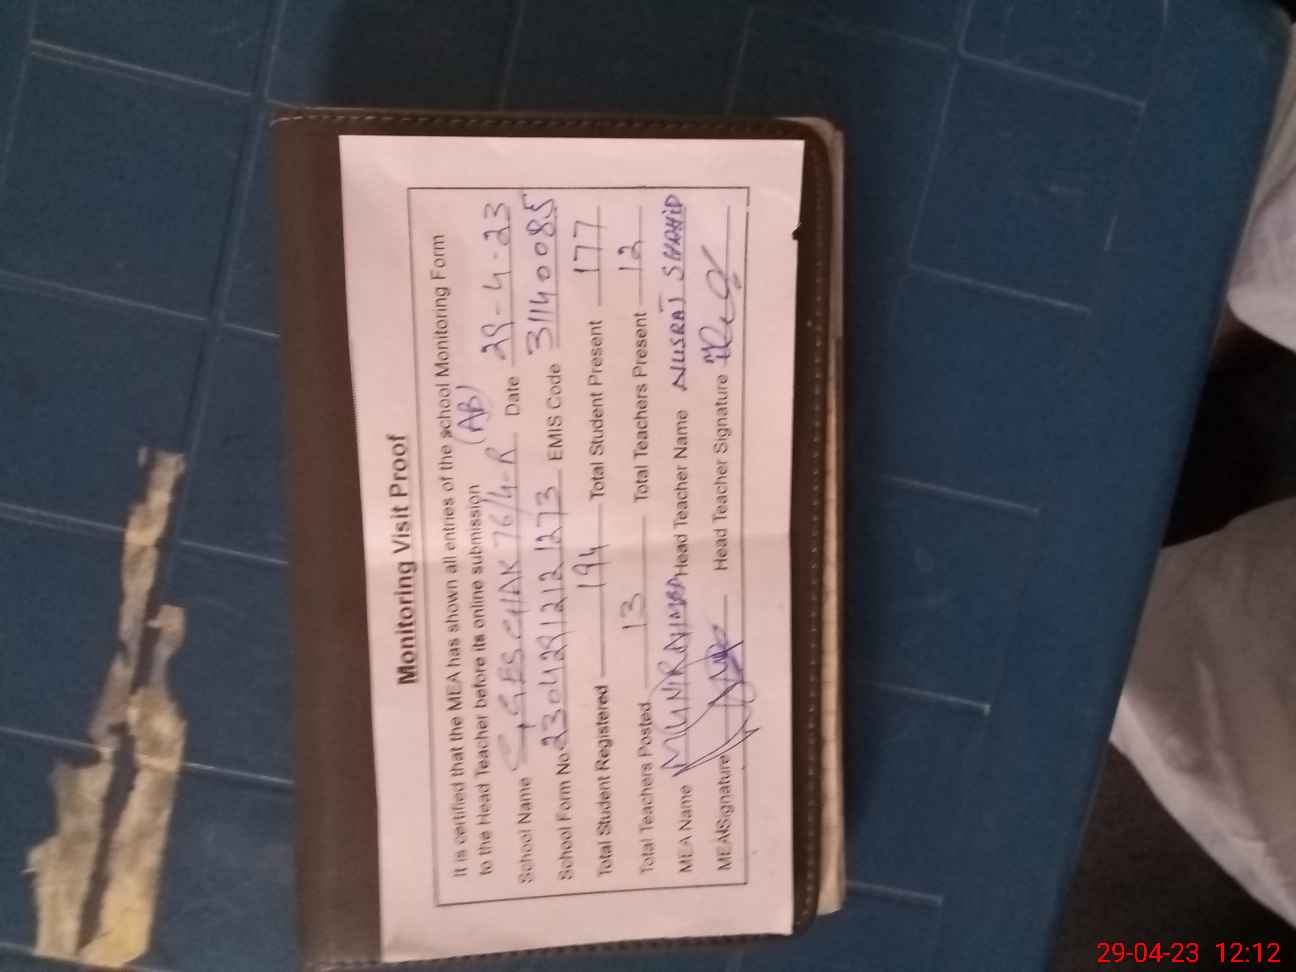 Monitoring Visit Proof
It is certified that the MEA has shown all entries of the school Monitoring Form
to the Head Teacher before its online submission
School Name GGES CHAK 76/4-R (AB) Date 29-4-23
School Form No 230429121 21273 EMIS Code 31140085
Total Student Registered 194 Total Student Present 177
Total Teachers Posted 13 Total Teachers Present 12
MEA Name Head Teacher Name NUSRAT SHAHID
MEA Signature Head Teacher Signature
29-04-23 12:12